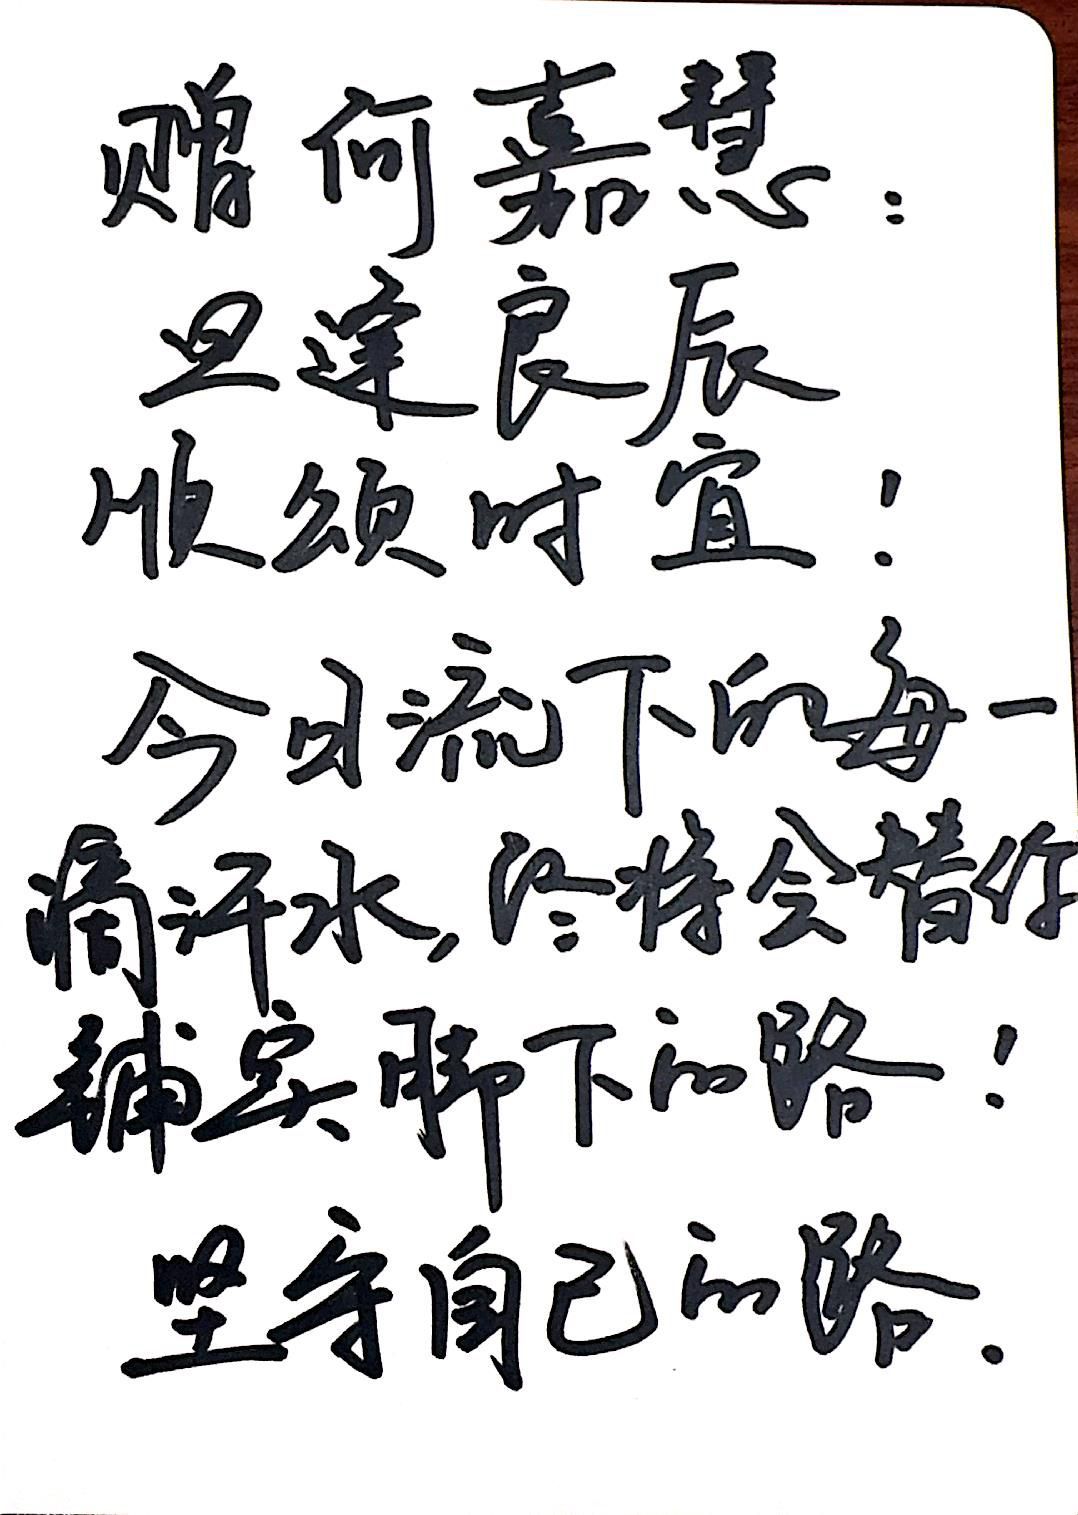 赠何嘉慧：
旦逢良辰
顺颂时宜！
今日流下的每一
滴汗水，终将会替你
铺实脚下的路！
坚守自己的路.